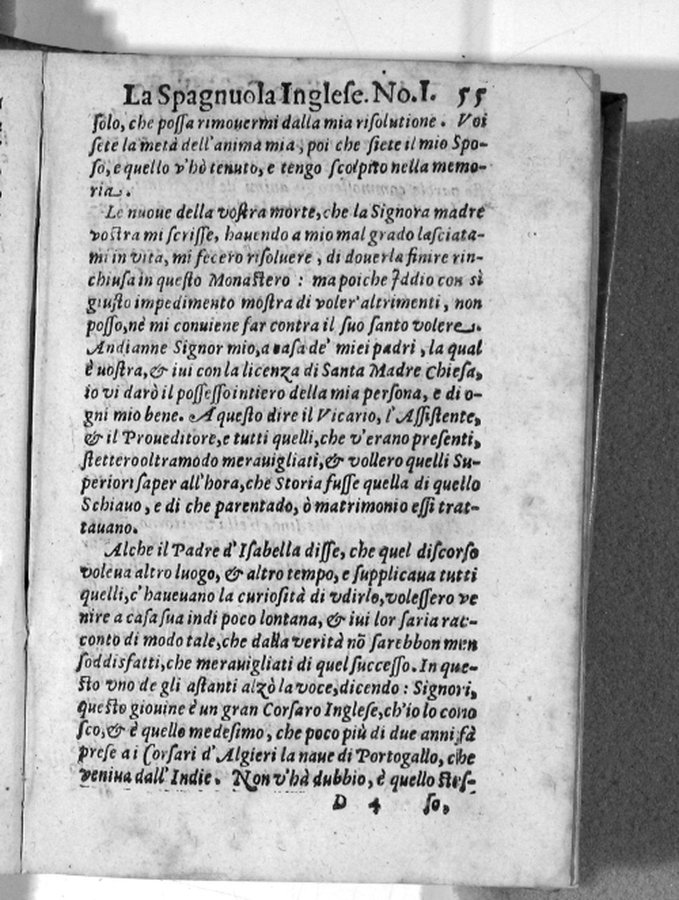 La Spagnuola Inglese. No.I. 55
ſolo, che poſſa rimouermi dalla mia riſolutione. Voi
ſete la metà dell'anima mia, poi che ſiete il mio Spo-
ſo, e quello v'hò tenuto, e tengo ſcolpito nella memo-
ria.
Le nuoue della voſtra morte, che la Signora madre
voſtra mi ſcriſſe, hauendo a mio mal grado laſciata-
mi in vita, mi fecero riſoluere, di douerla finire rin-
chiuſa in queſto Monaſtero : ma poiche Iddio con sì
giuſto impedimento moſtra di voler'altrimenti, non
poſſo, nè mi conuiene far contra il ſuo ſanto volere.
Andianne Signor mio, a caſa de' miei padri, la qual
è uoſtra, & iui con la licenza di Santa Madre Chieſa,
io vi darò il poſſeſſo intiero della mia perſona, e di o-
gni mio bene. A queſto dire il Vicario, l'Aſſiſtente,
& il Proueditore, e tutti quelli, che v'erano preſenti,
ſtettero oltramodo merauigliati, & vollero quelli Su-
periori ſaper all'hora, che Storia fuſſe quella di quello
Schiauo, e di che parentado, ò matrimonio eſſi trat-
tauano.
Alche il Padre d'Iſabella diſſe, che quel diſcorſo
voleua altro luogo, & altro tempo, e ſupplicaua tutti
quelli, c'haueuano la curioſità di vdirlo, voleſſero ve
nire a caſa ſua indi poco lontana, & iui lor ſaria rac-
conto di modo tale, che dalla verità nō ſarebbon men
ſoddisfatti, che merauigliati di quel ſucceſſo. In que-
ſto vno de gli aſtanti alzò la voce, dicendo : Signori,
queſto giouine è un gran Corſaro Ingleſe, ch'io lo cono
ſco, & è quello medeſimo, che poco più di due anni fà
preſe a i Corſari d'Algieri la naue di Portogallo, che
veniua dall'Indie. Non v'hà dubbio, è quello ſteſ-
D 4 ſo,